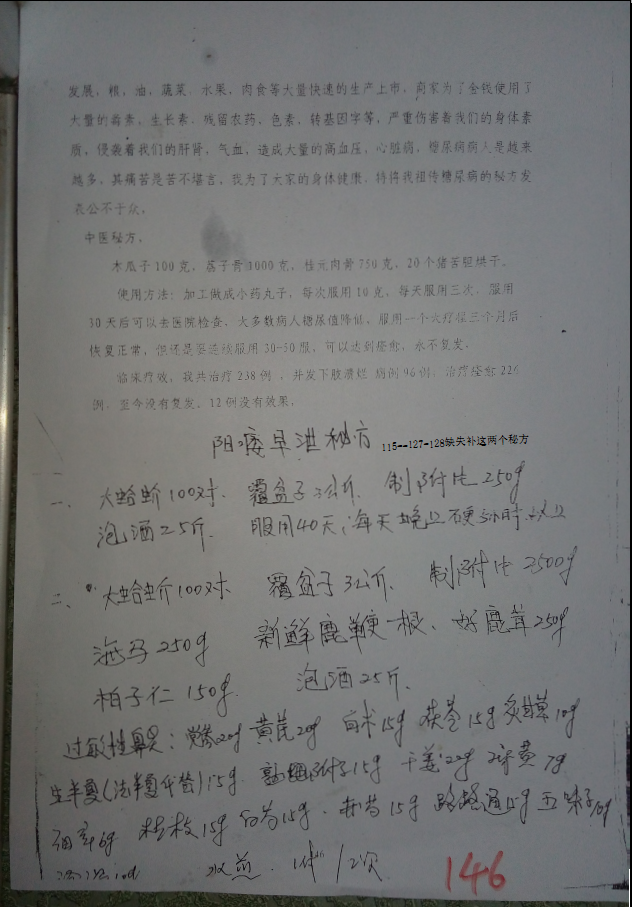 发展，粮、油、蔬菜、水果、肉食等大量快速的生产上市，商家为了金钱使用了
大量的毒素，生长素，残留农药，色素，转基因字等，严重伤害着我们的身体素
质，侵袭着我们的肝肾，气血，造成大量的高血压，心脏病，糖尿病病人是越来
越多，其痛苦是苦不堪言，我为了大家的身体健康，特将我祖传糖尿病的秘方发
表公不于众。
中医秘方：
木瓜子100克，荔子膏1000克，桂元肉膏750克，20个猪苦胆烘干。
使用方法：加工做成小药丸子，每次服用10克，每天服用三次，服用
30天后可以去医院检查，大多数病人糖尿值降低，服用一个大疗程三个月后
恢复正常，但还是要连续服用30-50服，可以达到痊愈，永不复发。
临床疗效，我共治疗238例，并发下肢溃烂 病例96例，治疗痊愈226
例，至今没有复发，12例没有效果。
阳痿早泄秘方 115--127-128缺失补这两个秘方
一、大蛤蚧100对、覆盆子3公斤、制附片250g
泡酒25斤 服用40天，每天晚上
二、大蛤蚧100对 覆盆子3公斤、制附片2500g
海马250g 新鲜鹿鞭一根、好鹿茸250g
柏子仁150g. 泡酒25斤.
过敏性鼻炎：党参20g 黄芪20g 白术15g 茯苓15g 炙甘草10g
生半夏(法半夏代替)15g 附子15g 干姜20g 7g
细辛6g 桂枝15g 白芍15g 赤芍15g 路路通15g 五味子10g
水煎 1付/2次
146